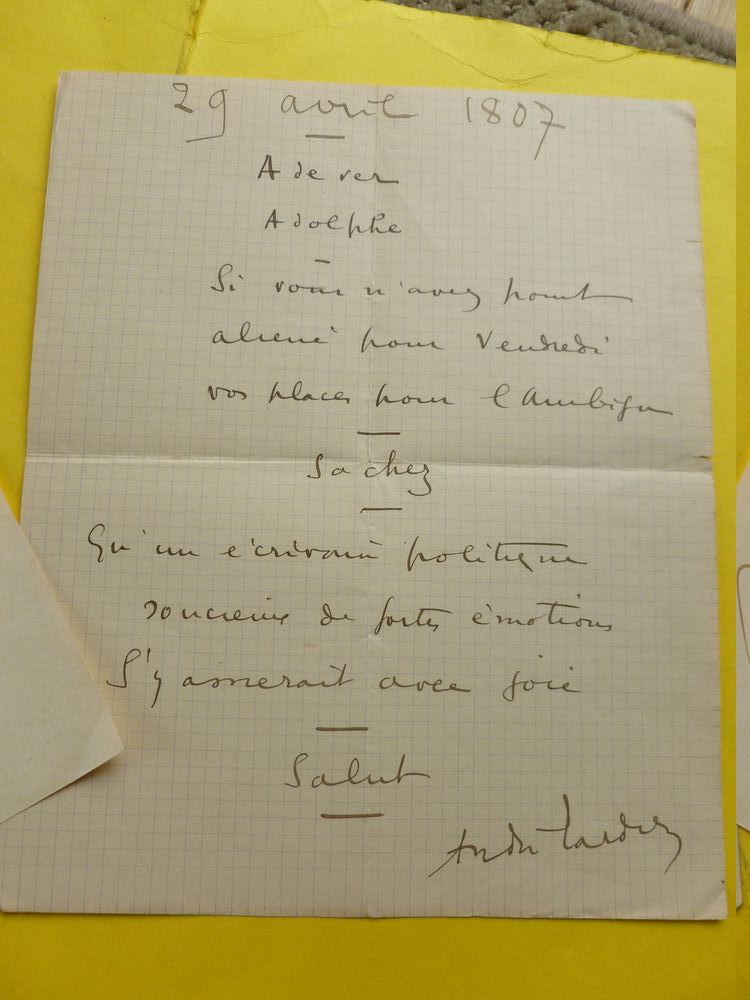 29 avril 1807
Aderer
Adolphe
Si vous n'avez point
aliéné pour Vendredi
vos places pour l'Ambigu
Sachez
Qu'un écrivain politique
soucieux de fortes émotions
S'y assierait avec joie
Salut
André Tardieu